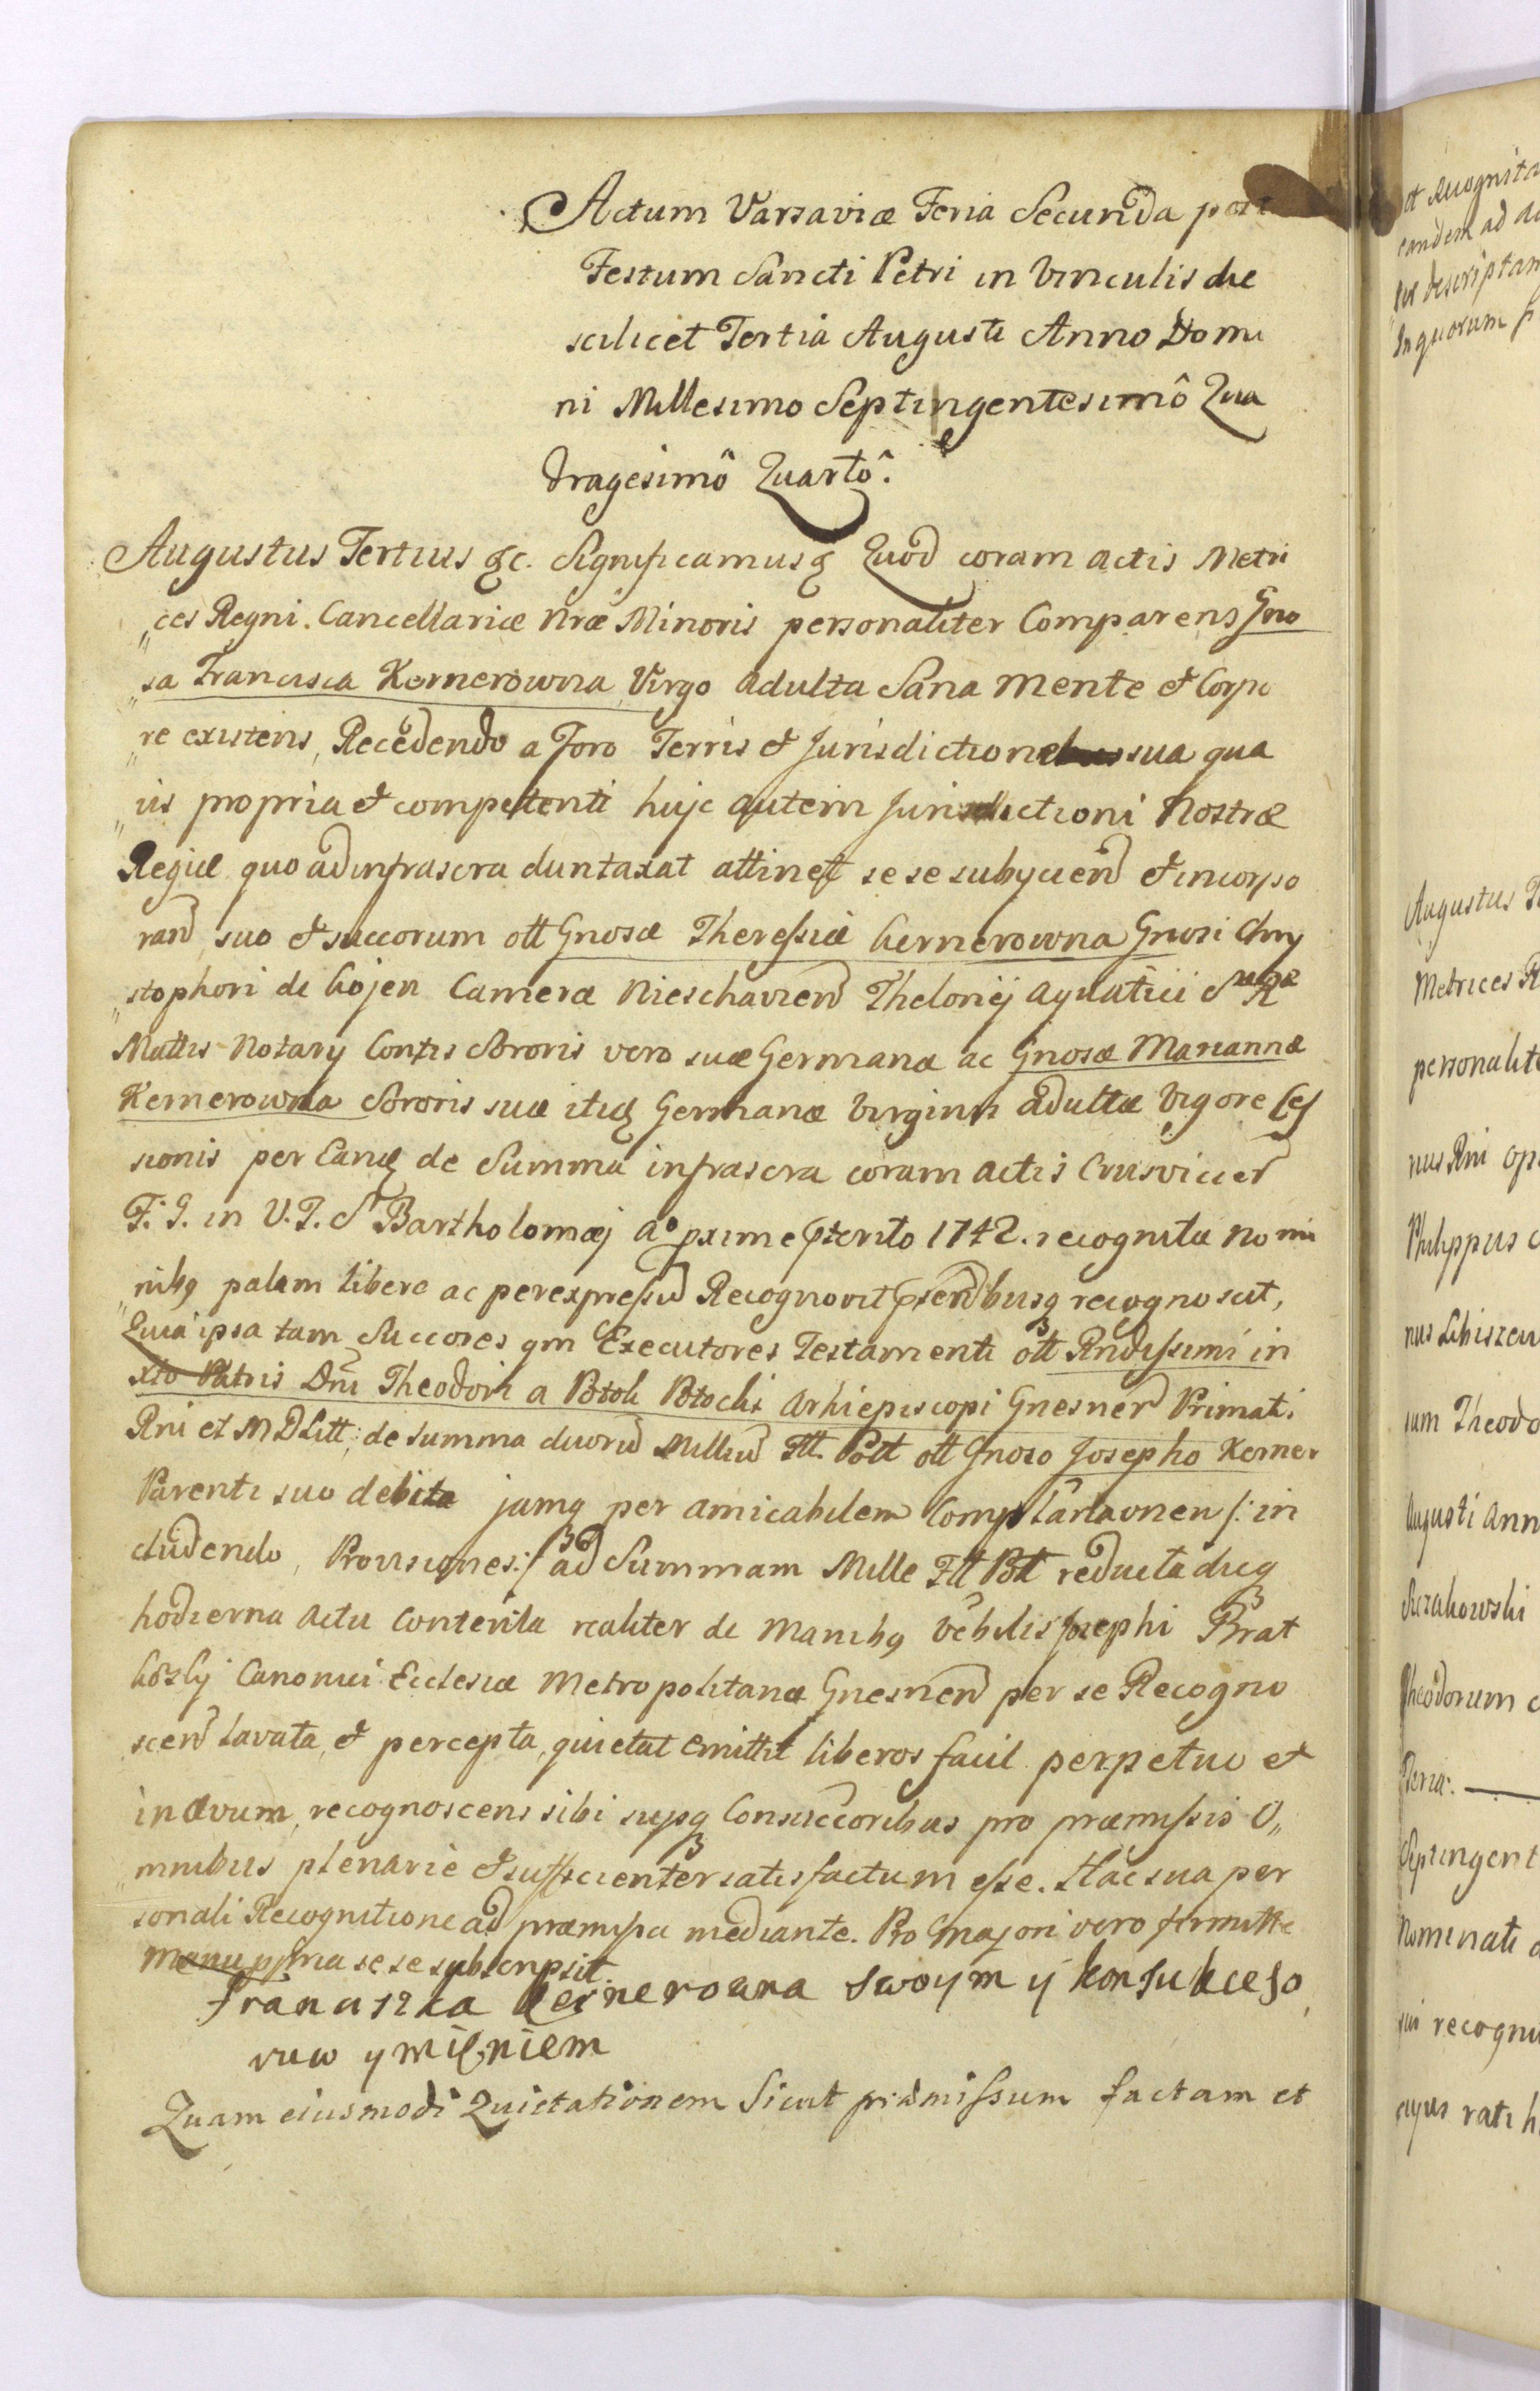 Actum Varsaviæ Feria Secunda post
Festum Sancti Petri in Vinculis die
scilicet Tertia Augusti Anno Domi
ni Millesimo Septingentesimô Qua
dragesimô Quartô.
Augustus Tertius &c. Significamus q Quod coram actis Metri
ces Regni Cancellariæ Nræ Minoris personaliter Comparens Gno
sa Francisca Kernerowna Virgo adulta Sana mente et Corpo
re existens, Recedendo a Foro Terris et Jurisdictione sua qua
vis propria et competenti hujc autem Jurisdictioni Nostræ
Regiæ quo ad infrascra duntaxat attinet se se subyciend et incorpo
rand, suo et succorum ott Gnosæ Theressiæ Kernerowna Gnosi Chry
stophori de Kojen Cameræ Nieschavien Thelonej aquatici S R
Mattis Notary Contis Sororis vero suæ Germanæ ac Gnosæ Mariannæ
Kernerowna Sororis suæ itidq Germanæ Virginis adultæ Vigore Ces
sionis per Eandq de Summa infrascra coram actis Crusvicien
F. S. in V. F. S Bartholomæj Aº pxime pterito 1742. recognitæ nomi
nibq palam libere ac per expressu Recognovit psendbusq recognoscit,
Quia ipsa tam Succores qm Executores Testamenti ott Rndissimi in
xto Patris Dni Theodori a Potok Potocki Arhiepiscopi Gnesnen Primati
Rni et MDLitt; de summa duoru Milliu Ftt. Poll ott Gnoso Josepho Kerner
Parenti suo debita jamq per amicabilem Complanaonem /: in
cludendo, Provisiones:/ ad Summam Mille Ftt Poll reducta dieq
hodierna actu Contenta realiter de Manibq Vebilis Josephi Brat
koszky Canonici Ecclesiæ Metropolitanæ Gnesnen per se Recogno
scen Lavata, et percepta, quietat emittit liberos facit perpetuo et
in ævum, recognoscens sibi suysq Consuccoribus pro præmissis O,,
mnibus plenarie et sufficienter satisfactum esse. Hac sua per
sonali Recognitione ad præmissa mediante. Pro majori vero firmitte
Manu ppria se se subscripsit.
Franciszka Kerneroana swoym y konsukceso
ruw ymięniem
Quam eiusmodi Quietationem Sicut præmissum factam et
et recognita
eandem ad A
descriptam
In quorum
Augustus
Metrices R
personalite
nus Rni
Philippus
nus
ium Theodo
Augusti Ann
Theodorum
Septingent
Nominati
recogni
cujus rati h